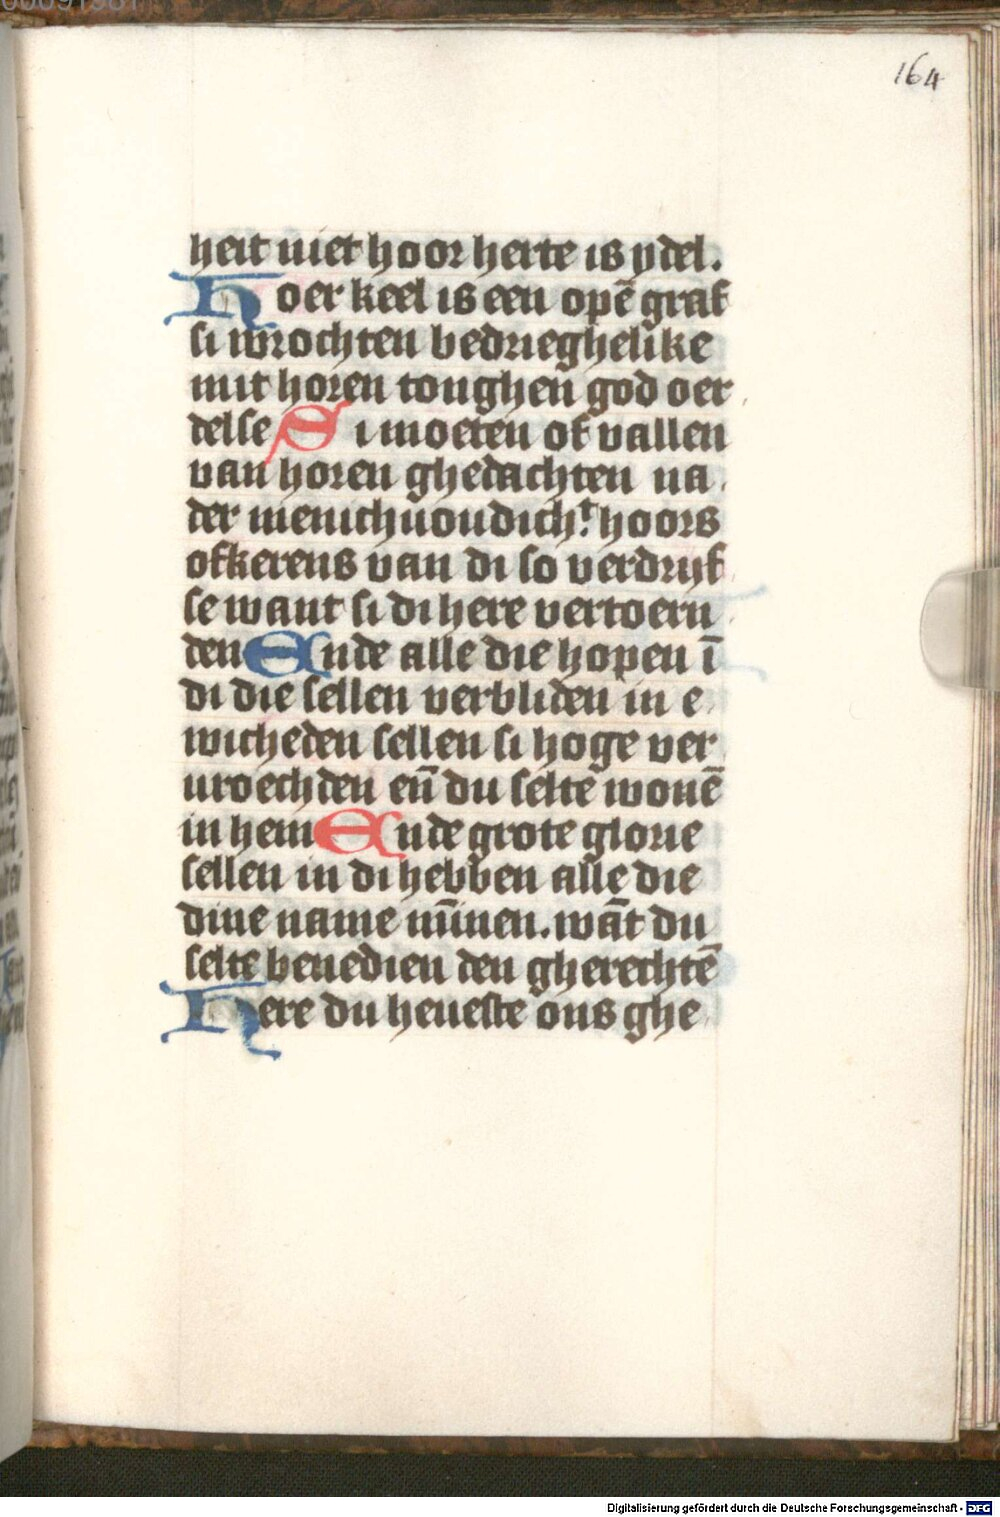 164
heit niet hoor herte is ydel.
Hoer keel is een opē graf
si wrochten bedrieghelike
mit horen tonghen god oer
delse Si moeten of vallen
van horen ghedachten na
der menichuoudich.t hoors
ofkerens van di so verdrijf
se want si di here vertoern
den Ende alle die hopen ī
di die sellen verbliden in e
wicheden sellen si hoge ver
uroechden en̄ du selte wonē
in hem Ende grote glorie
sellen in di hebben alle die
dine name mīnen. wāt du
selte benedien den gherechtē
Here du heueste ons ghe
Digitalisierung gefördert durch die Deutsche Forschungsgemeinschaft - DFG